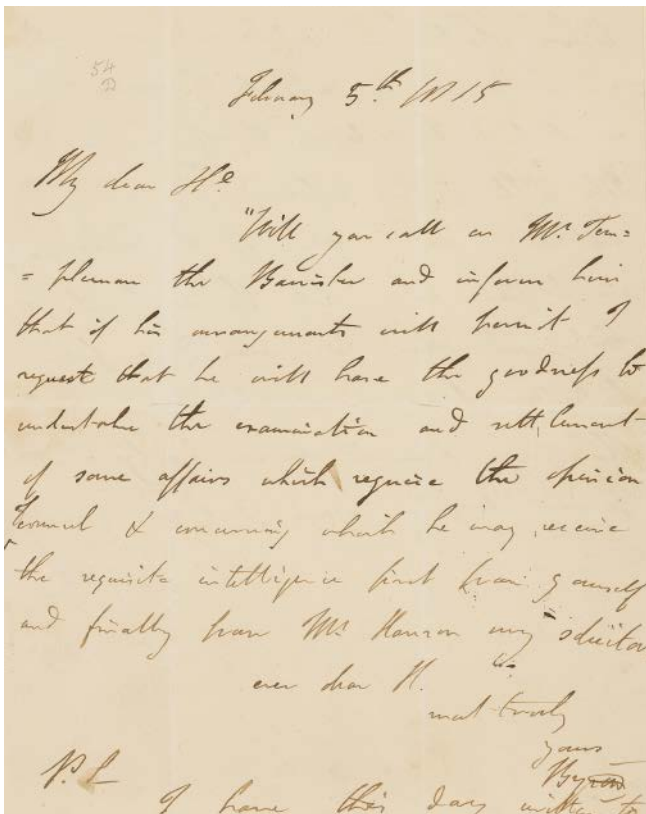 54
D
February 5.th 1815
My dear H.e
"Will you call on Mr. Tem=
= pleman the Barrister and inform him
that if his arrangements will permit I
request that he will have the goodness to
undertake the examination and settlement
of some affairs which require the opinion
Counsel & concerning which he may receive
the requisite intelligence first from yourself
and finally from Mr Hanson my solicitor
ever dear H.
most truly
yours
Byron
P.S
I have this day written to